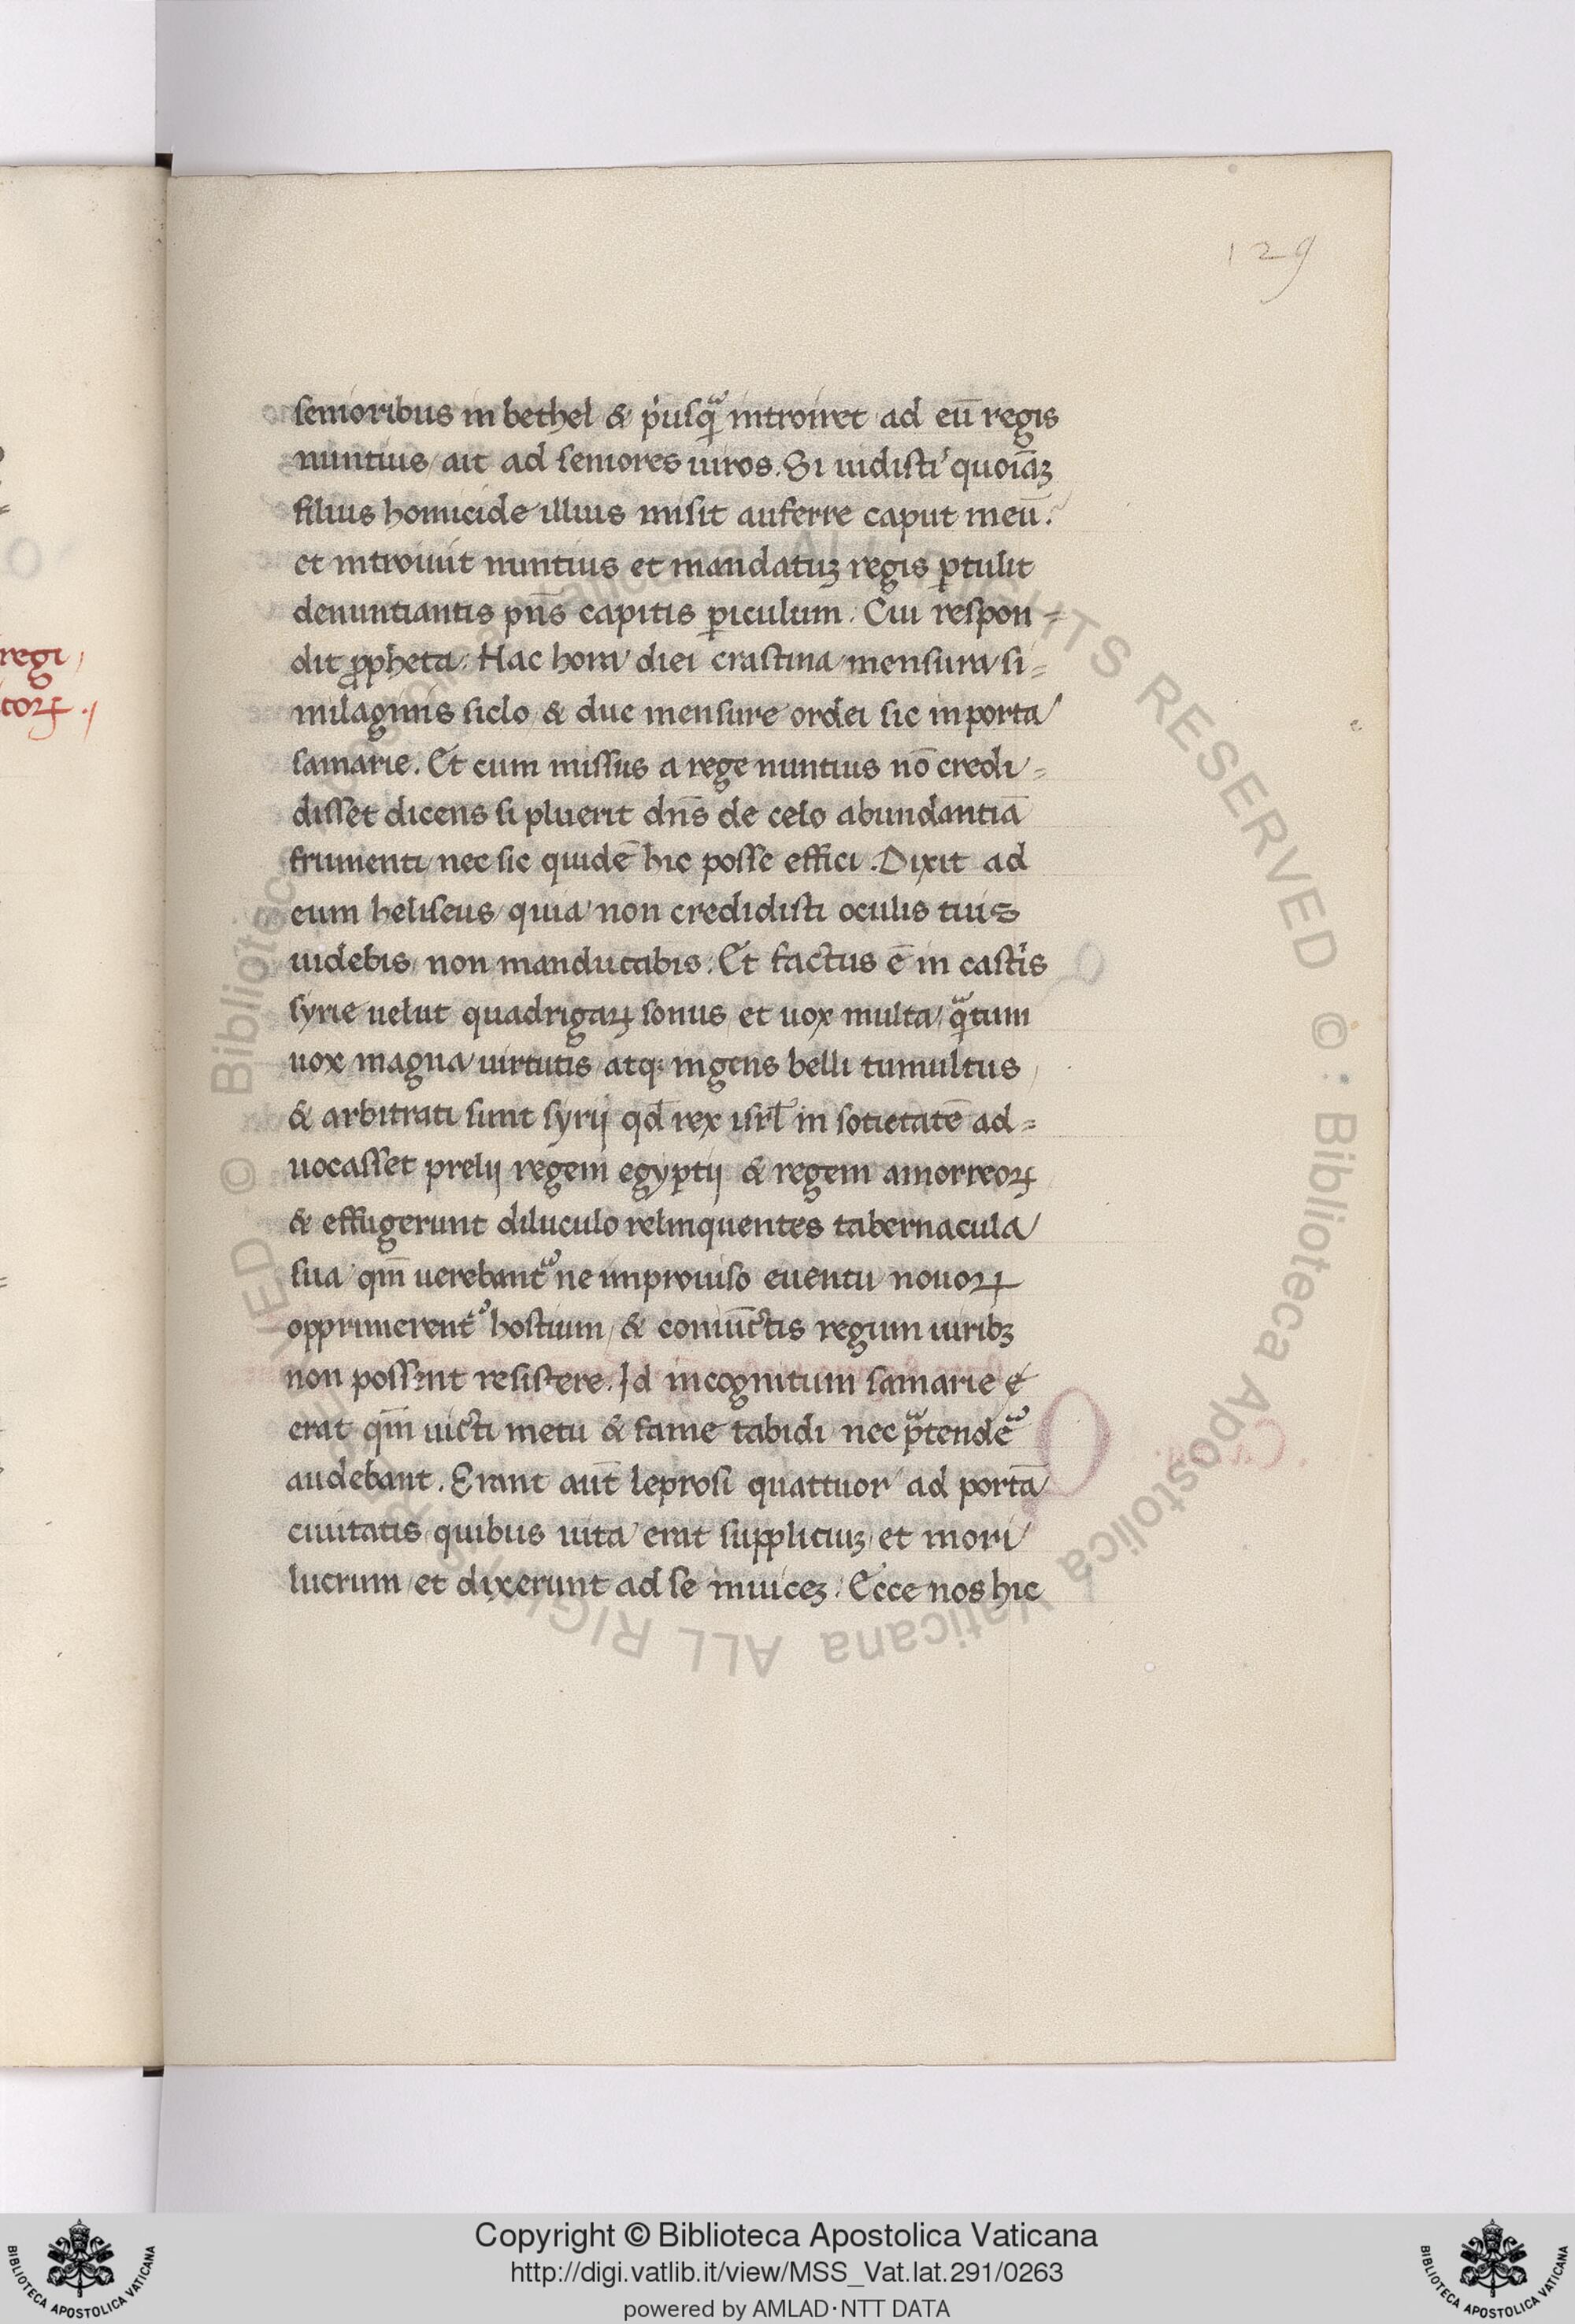 129
senioribus in bethel & p'usq̃ introiret ad eū regis
nuntius / ait ad seniores uiros. Si uidisti quoiāꝫ
filius homicide illius misit auferre caput meū.
et introiuit nuntius et mandatuꝫ regis ꝑtulit
denuntiantis pn̄s capitis ꝑiculum. Cui respon=
dit ꝓpheta. Hac hora diei crastina mensura si=
milaginis siclo & due mensure ordei sic in porta
samarie. Et cum missus a rege nuntius nō credi=
disset dicens si pluerit dn̄s de celo abundantiā
frumenti / nec sic quidē hic posse effici. Dixit ad
eum heliseus / quia non credidisti oculis tuis
uidebis / non manducabis. Et factus ē in cast'is
syrie uelut quadrigaꝝ sonus et uox multa / q̃tum
uox magna uirtutis atq: ingens belli tumultus
& arbitrati sunt syrij qd̄ rex isrł in sotietatē ad=
uocasset prelij regem egyptij & regem amorreoꝝ
& effugerunt diluculo relinquentes tabernacula
sua qm̄ uerebant᷑ ne improuiso euentu nouoꝝ
opprimerent᷑ hostium / & coniūctis regum uiribꝫ
non possent resistere. Id incognitum samarie
erat qm̄ uicti metu & fame tabidi nec p̃tende᷑
audebant. Erant aut̄ leprosi quattuor ad portā
ciuitatis / quibus uita erat suppliciuꝫ / et mori
lucrum / et dixerunt ad se inuiceꝫ. Ecce nos hic
regi /
toꝝ ./
Copyright © Biblioteca Apostolica Vaticana
http://digi.vatlib.it/view/MSS_Vat.lat.291/0263
powered by AMLAD·NTT DATA
BIBLIOTECA APOSTOLICA VATICANA
BIBLIOTECA APOSTOLICA VATICANA